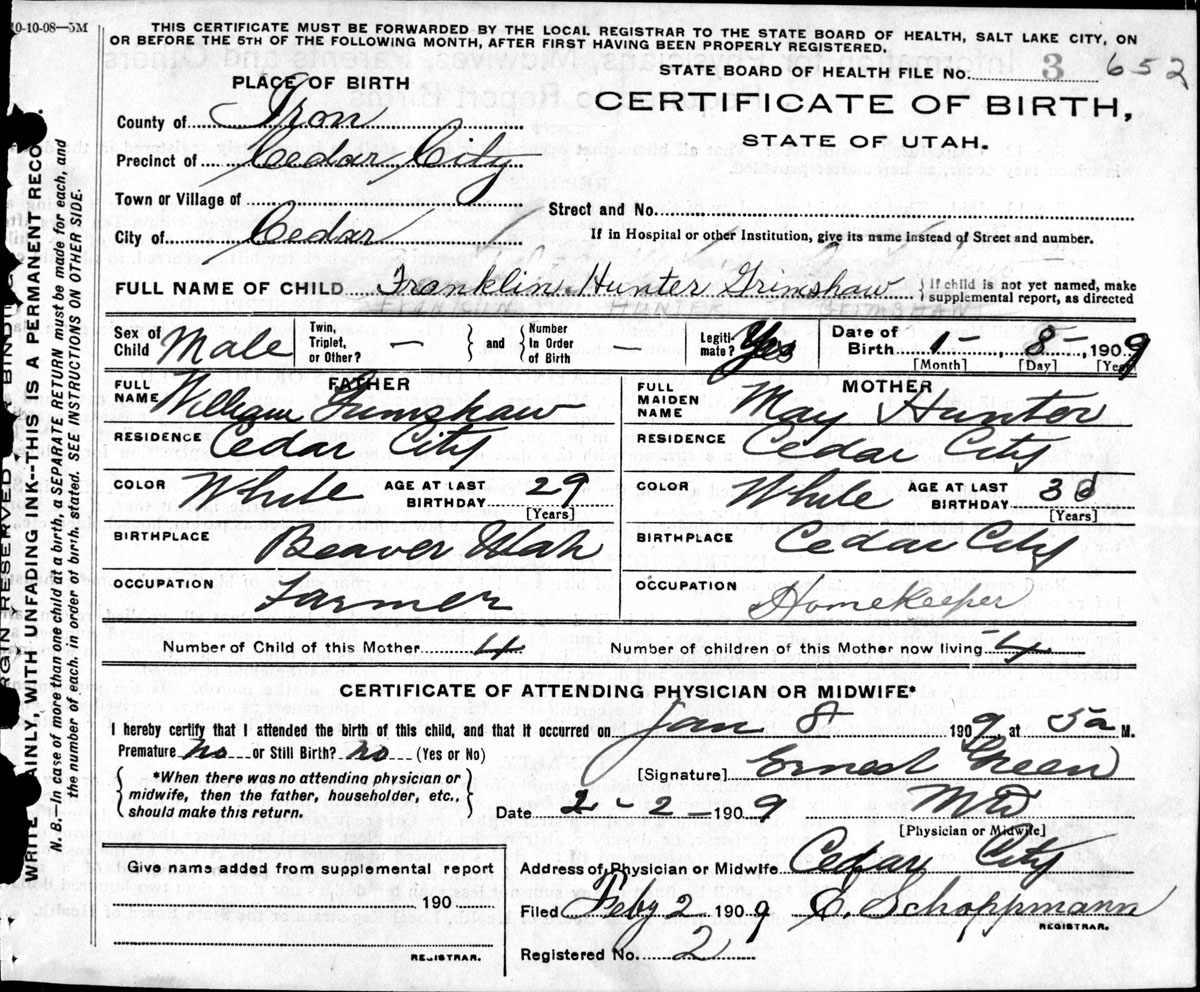 10-10-08—5M
THIS CERTIFICATE MUST BE FORWARDED BY THE LOCAL REGISTRAR TO THE STATE BOARD OF HEALTH, SALT LAKE CITY, ON
OR BEFORE THE 5TH OF THE FOLLOWING MONTH, AFTER FIRST HAVING BEEN PROPERLY REGISTERED.
STATE BOARD OF HEALTH FILE No. 3 652
CERTIFICATE OF BIRTH,
STATE OF UTAH.
PLACE OF BIRTH
County of Iron
Precinct of Cedar City
Town or Village of
City of Cedar
Street and No.
If in Hospital or other Institution, give its name instead of Street and number.
FULL NAME OF CHILD Franklin Hunter Grimshaw { If child is not yet named, make
supplemental report, as directed
FRANKLIN HUNTER GRIMSHAW
Sex of Child Male Twin, Triplet, or Other? — } and { Number In Order of Birth — Legiti- mate? Yes Date of Birth 1 - 8 -, 1909
[Month] [Day] [Year]
FATHER
FULL NAME William Grimshaw
RESIDENCE Cedar City
COLOR White AGE AT LAST BIRTHDAY 29
[Years]
BIRTHPLACE Beaver Utah
OCCUPATION Farmer
MOTHER
FULL MAIDEN NAME May Hunter
RESIDENCE Cedar City
COLOR White AGE AT LAST BIRTHDAY
[Years]
BIRTHPLACE Cedar City
OCCUPATION Homekeeper
Number of Child of this Mother 4 Number of children of this Mother now living 4
CERTIFICATE OF ATTENDING PHYSICIAN OR MIDWIFE*
I hereby certify that I attended the birth of this child, and that it occurred on Jan 8 1909, at 5a M.
Premature no or Still Birth? no (Yes or No)
{ *When there was no attending physician or
midwife, then the father, householder, etc.,
should make this return. }
[Signature] Ernest Green
Date 2-2-1909 MD
[Physician or Midwife]
Give name added from supplemental report
190
REGISTRAR.
Address of Physician or Midwife Cedar City
Filed Feby 2 - 1909 C. Schoppmann
REGISTRAR.
Registered No. 2
MARGIN RESERVED BINDING
WRITE PLAINLY, WITH UNFADING INK--THIS IS A PERMANENT RECO
N. B.—In case of more than one child at a birth, a SEPARATE RETURN must be made for each, and
the number of each, in order of birth, stated. SEE INSTRUCTIONS ON OTHER SIDE.